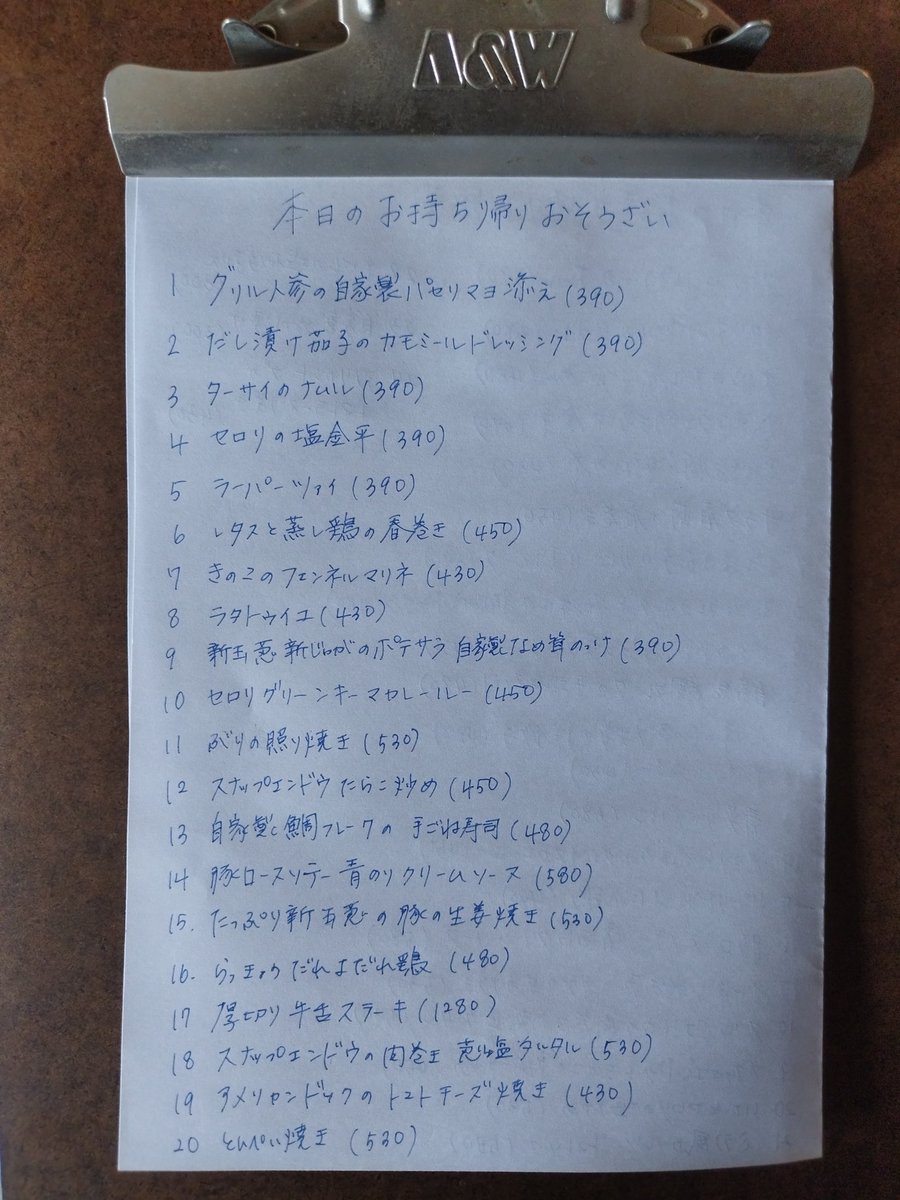 A&W
本日のお持ち帰りおそうざい
1 グリル人参の自家製パセリマヨ添え(390)
2 だし漬け茄子のカモミールドレッシング(390)
3 ターサイのナムル(390)
4 セロリの塩金平(390)
5 ラーパーツァイ(390)
6 レタスと蒸し鶏の春巻き(450)
7 きのこのフェンネルマリネ(430)
8 ラタトゥイユ(430)
9 新玉葱新じゃがのポテサラ 自家製なめ茸のっけ(390)
10 セロリグリーンキーマカレールー(450)
11 ぶりの照り焼き(530)
12 スナップエンドウたらこ炒め(450)
13 自家製鯛フレークの手ごね寿司(480)
14 豚ロースソテー青のりクリームソース(580)
15. たっぷり新玉葱の豚の生姜焼き(530)
16. らっきょうだれよだれ鶏(480)
17 厚切り牛舌ステーキ(1280)
18 スナップエンドウの肉巻き 葱塩タルタル(530)
19 アメリカンドックのトマトチーズ焼き(430)
20 とんぺい焼き(530)